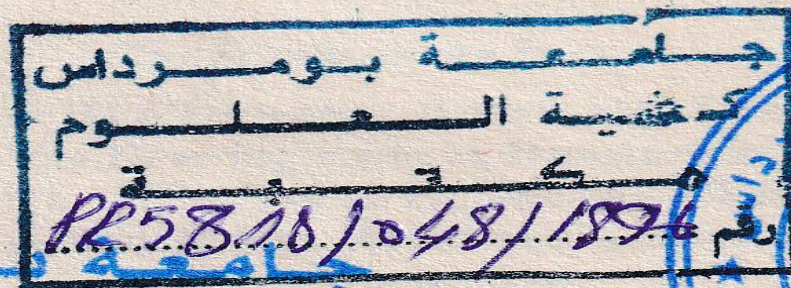 جامعة بومرداس
كلية العلوم
مكتبة
رقم PR5818/048/1896
جامعة